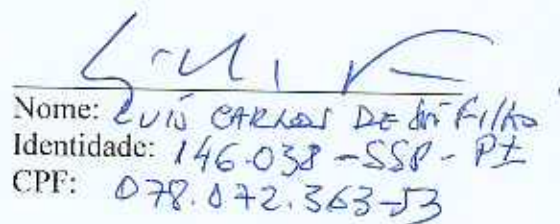 Nome: LUIS CARLOS DE SÁ FILHO
Identidade: 146.038-SSP-PI
CPF: 078.072.363-53